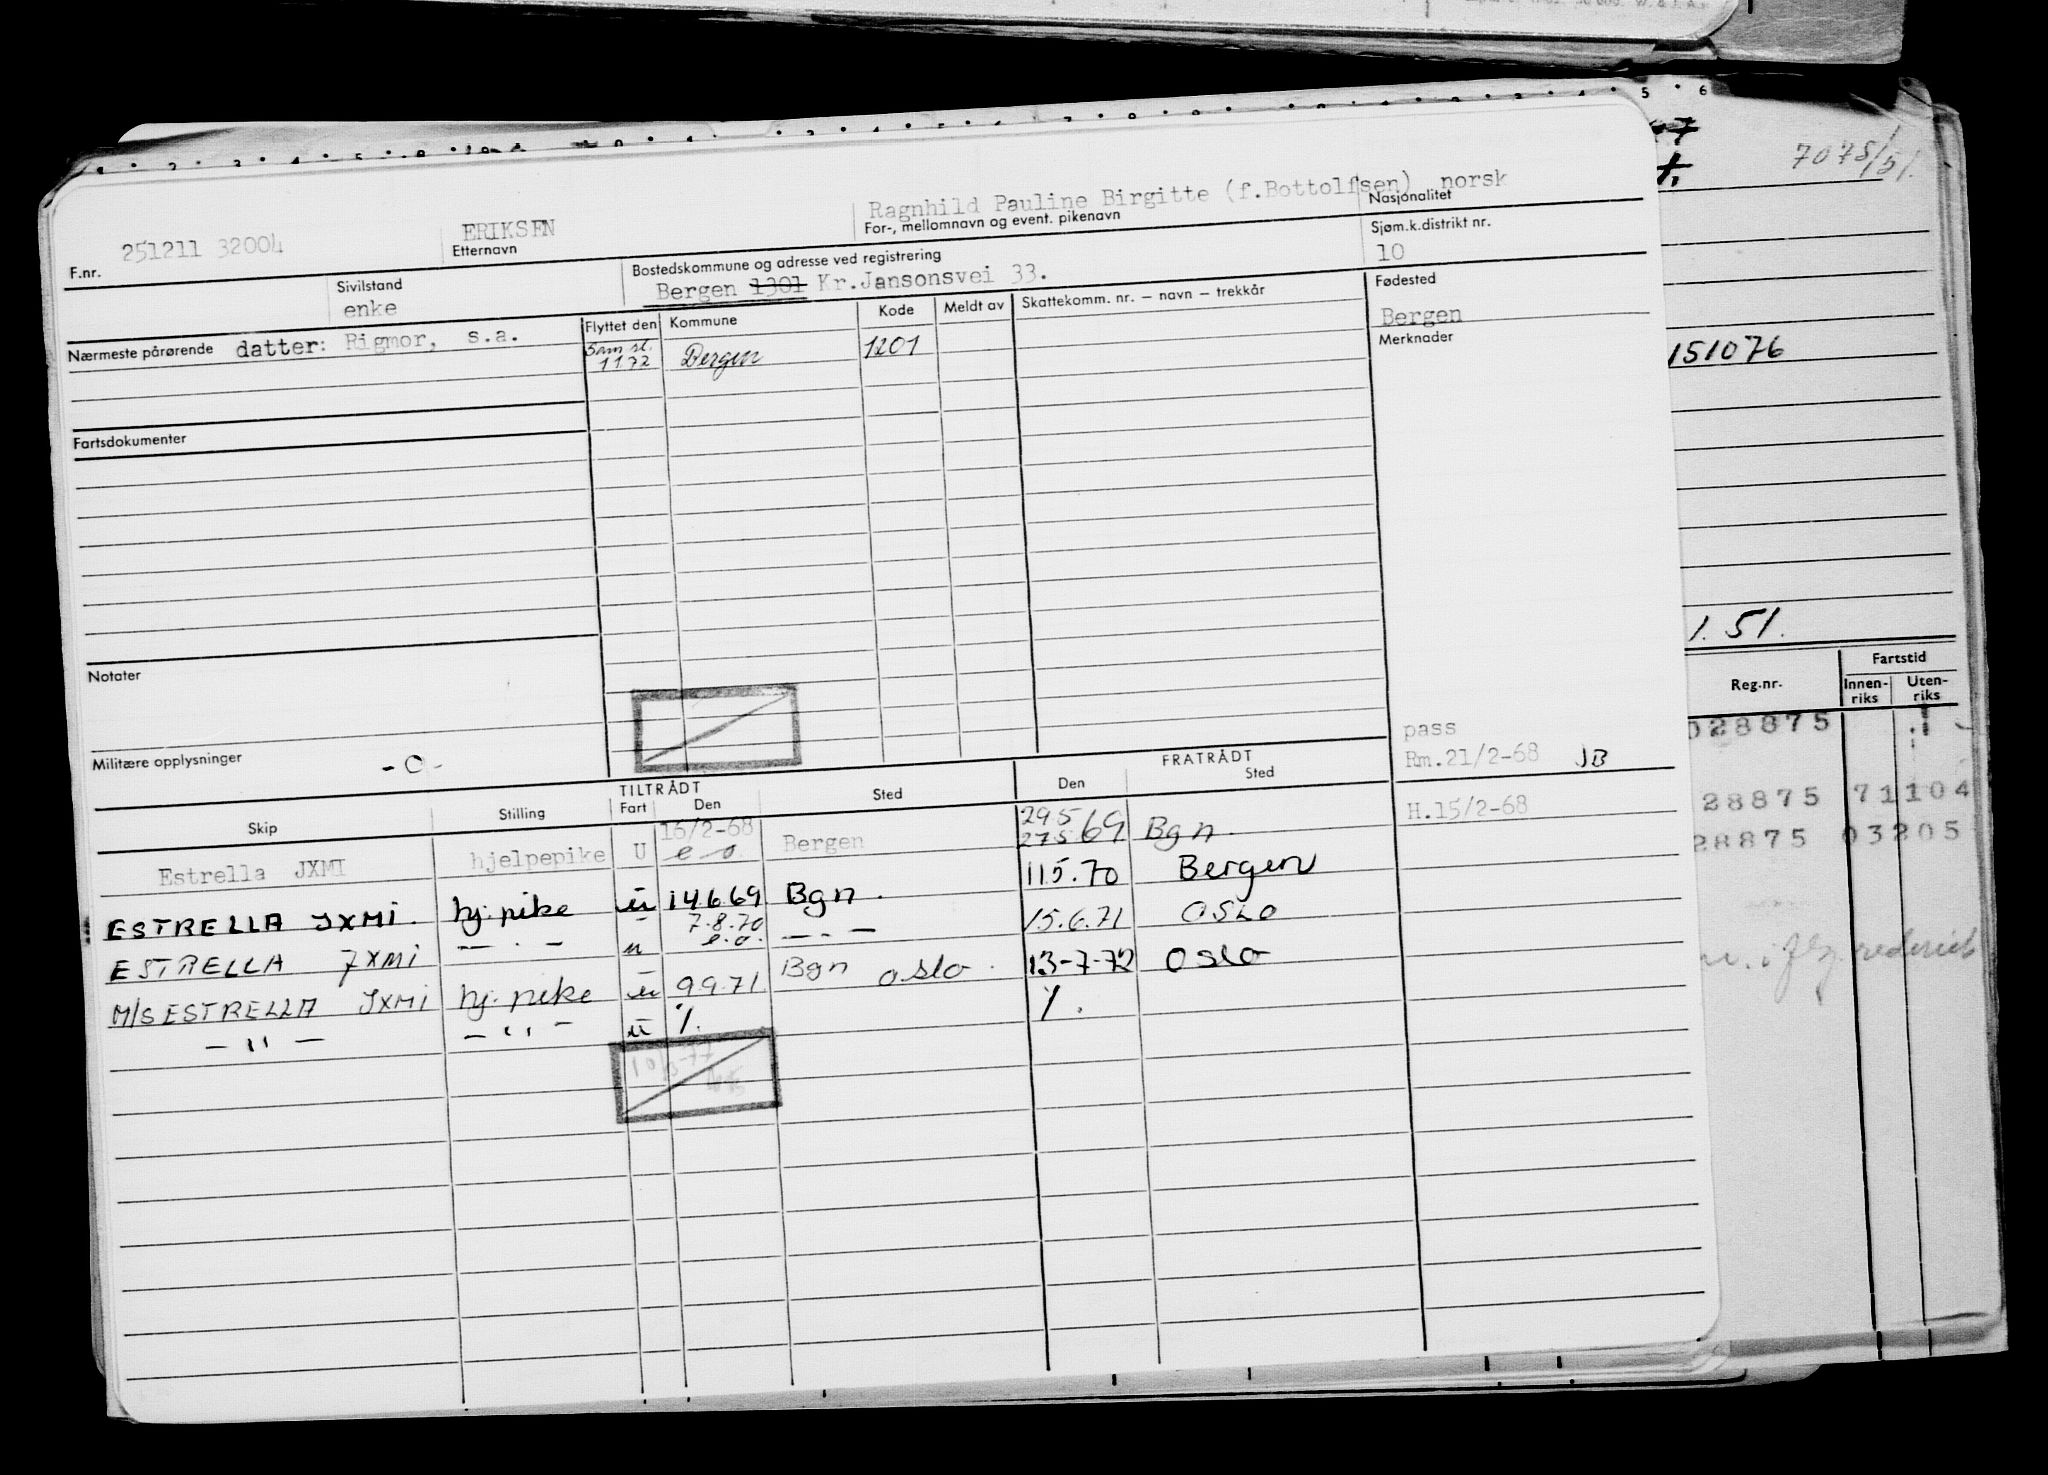 7075/51.
251211 32004 ERIKSEN Ragnhild Pauline Birgitte (f.Bottolfsen) norsk
F.nr. Etternavn For-, mellomnavn og event. pikenavn Nasjonalitet
Sivilstand Bostedskommune og adresse ved registrering Sjøm.k.distrikt nr.
enke Bergen 1301 Kr.Jansonsvei 33. 10
Nærmeste pårørende datter: Rigmor, s.a. Flyttet den Kommune Kode Meldt av Skattekomm. nr. – navn – trekkår Fødested
Bergen
Sam st.
1172 Bergen 1201 Merknader
151076
Fartsdokumenter
1.51.
Notater
Reg.nr. Fartstid
Innen-riks Uten-riks
028875
pass
Militære opplysninger -0- Rm.21/2-68 JB
TILTRÅDT FRATRÅDT
Skip Stilling Fart Den Sted Den Sted
H.15/2-68
28875 71104
28875 03205
Estrella JXMI hjelpepike U 16/2-68 e o Bergen 295 27569 Bgn.
ESTRELLA JXMI. hj.pike u 14669 Bgn. 115.70 Bergen
ESTRELLA JXMI — . — u 7.8.70 e.o. — . — 15.6.71 OSLO
M/S ESTRELLA JXMI hj.pike u 9971 Bgn oslo. 13-7-72 Oslo
— " — — " — u %. %.